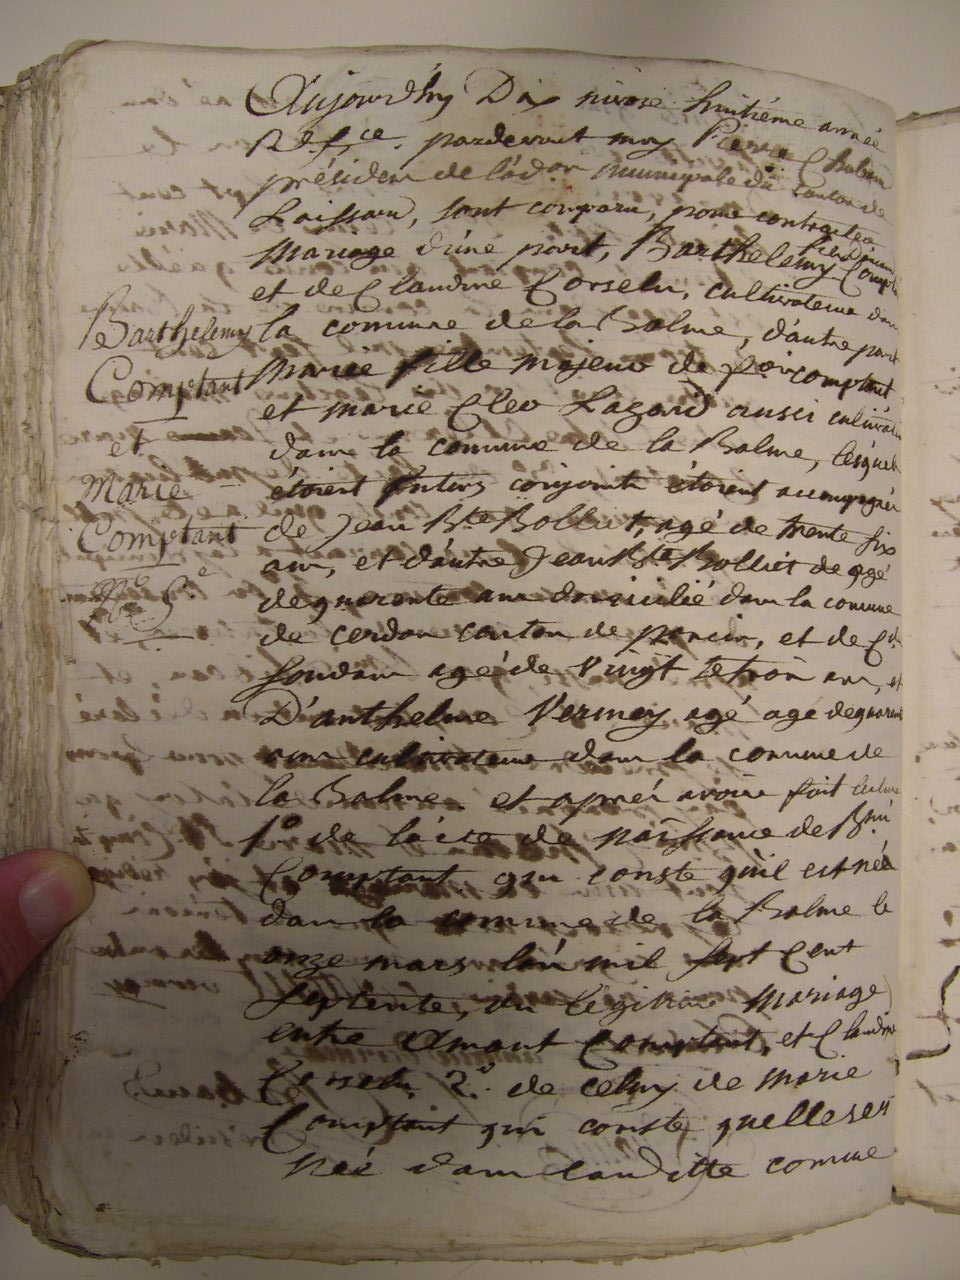 Aujourdhuy Dix nivose huitième année
Repce. pardevant moy Pierre Chaland
président de l'adon municipale du canton de
Laissard, sont comparu, pour contracter
mariage d'une part, Barthelemy Comptant
et de Claudine Corselu, cultivateur dans
la commune de la Balme, d'autre part
Marie fille majeur de comptant
et marie Cleo Lazard aussi cultivateur
dans la comune de la Balme, lesquels
étoient futurs conjoints étoient accompagnés
de Jean Bte Bolliet, agé de trente six
ans, et d'autre Jean Bte Bolliet de agé
de quarente ans domicilié dans la comune
de cerdon canton de poncin, et de Cde
Soudan agé de Vingt et trois ans, et
D'anthelme Vermey agé agé de quarente
ans cultivateur dans la comune de
la Balme. et aprés avoir fait lecture
1º de l'acte de naissance de Bmi
Comptant qui conste qu'il est néá
dans la comune de la Balme le
onze mars l'an mil sept Cent
septente, du légitime Mariage
entre Amant Comptant, et Claudine
Corselu 2.º de celuy de Marie
Comptant qui conste quelle ser
néé dans laditte comune
Barthelemy
Comptant
et
Marie
Comptant